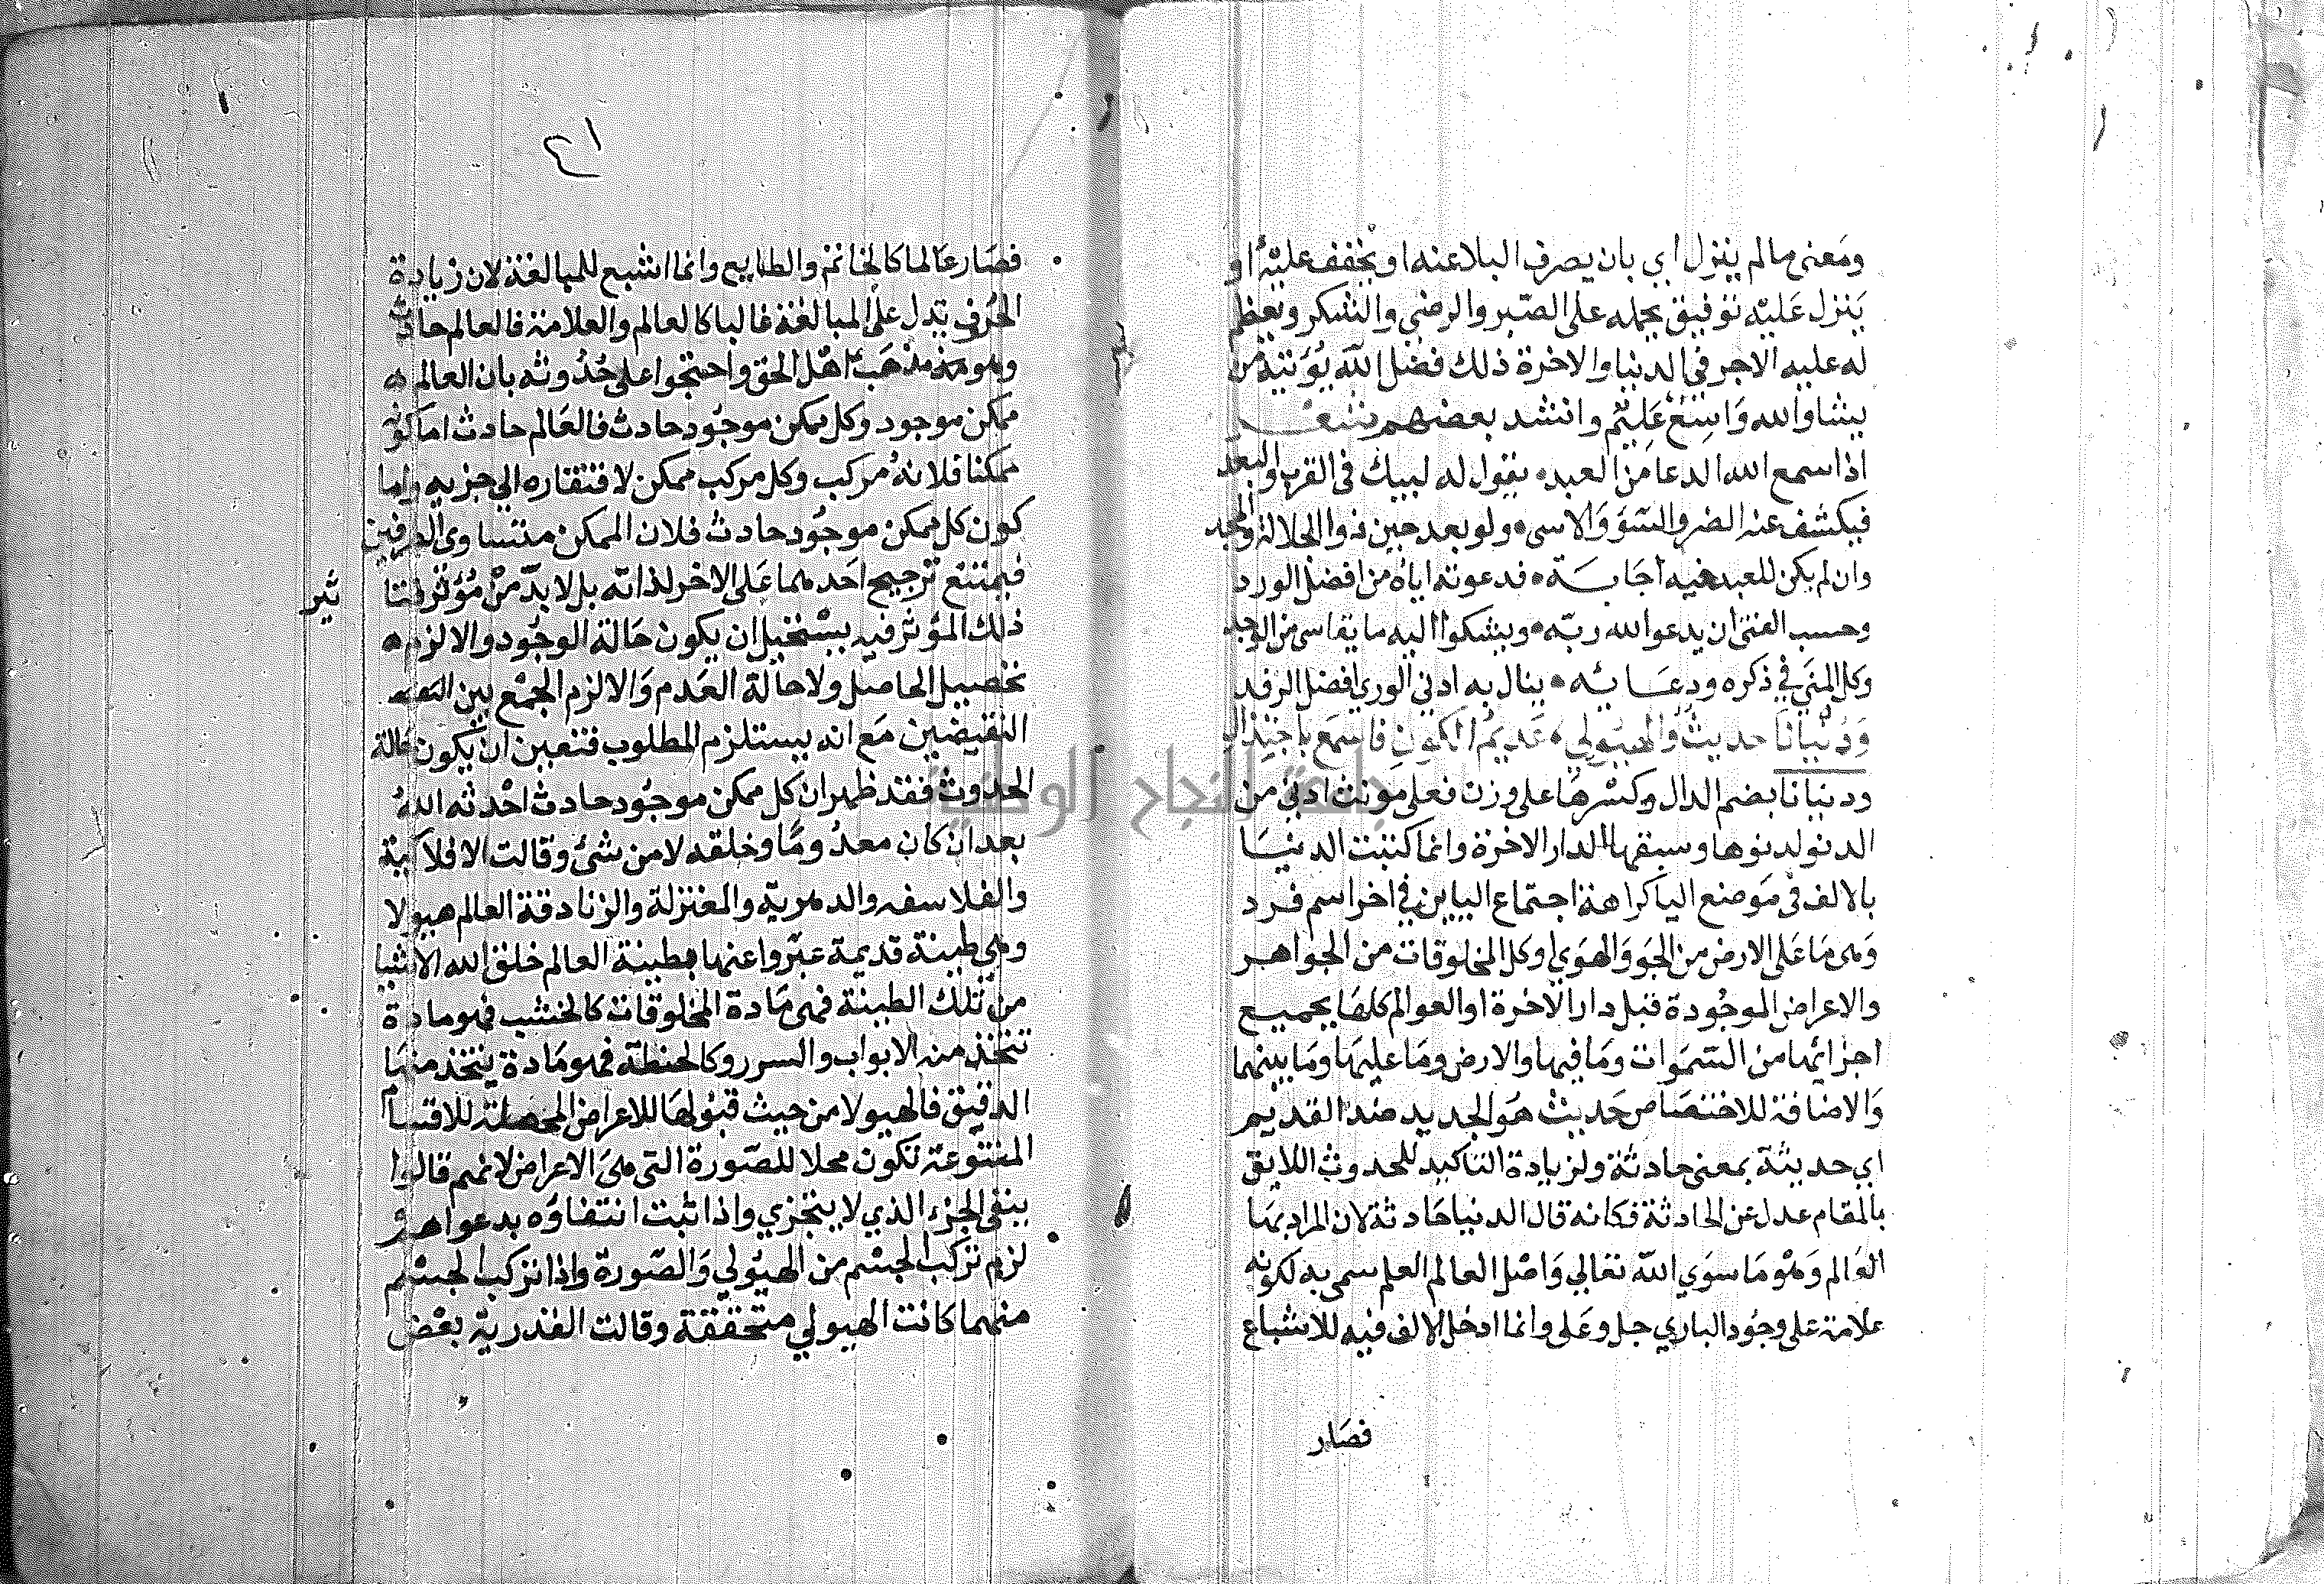 ومعنى مالم ينزل أي بان يصرف البلا عنه او يخفف عليه او
ينزل عليه توفيق يحمله على الصبر والرضي والشكر ويعظم
له عليه الاجر في الدنيا والاخرة ذلك فضل الله يؤتيه من
يشا والله واسع عليم وانشد بعضهم شعر
اذا سمع الله الدعا من العبد ه يقول له لبيك في القرب والبعد
فيكشف عنه الضر والسوَ والاسى ه ولو بعد حين ذوا الجلالة والمجد
وان لم يكن للعبد فيه أجابة ه فدعوته اياه من افضل الورد
وحسب الفتى ان يدعوا الله ربه ه ويشكوا اليه ما يقاسى من الوجد
وكل المني في ذكره ودعائه ه ينال به ادني الوري افضل الرفد
وَدُنْيانا حديثٌ والهيولي ه عديم الكون فاسمع باجتذال
ودنيانا بضم الدال وكسرها على وزن فعلى مونث ادني من
الدنو لدنوها وسبقها الدار الاخرة وانما كتبت الدنيا
بالالف في موضع اليا كراهة اجتماع اليايين في اخر اسم فرد
وهى ما على الارض من الجو والهوي او كل المخلوقات من الجواهر
والاعراض الموجودة قبل دار الاخرة او العوالم كلها بجميع
اجزائها من السموات وما فيها والارض وما عليها وما بينهما
والاضافة للاختصاص حديث هو الجديد ضد القديم
اي حديثة بمعنى حادثة ولزيادة التاكيد للحدوث اللايق
بالمقام عدل عن الحادثة فكانه قال الدنيا حادثة لان المراد بها
العالم وهو ما سوي الله تعالي واصل العالم العلم سمى به لكونه
علامة على وجود الباري جل وعلى وانما ادخل الالف فيه للاشباع
فصار
٤١
فصار عالما كالخاتم والطابع وانما اشبع للمبالغة لان زيادة
الحرف تدل على المبالغة غالبا كالعالم والعلامة فالعالم حادث
وهو مذهب اهل الحق واحتجوا على حدوثه بان العالم ه
ممكن موجود وكل ممكن موجود حادث فالعالم حادث اما كونه
ممكنا فلانه مركب وكل مركب ممكن لافتقاره الي جزيه واما
كون كل ممكن موجود حادث فلان الممكن متساوى الطرفين
فيمتنع ترجيح احدهما على الاخر لذاته بل لا بدّ من مؤثر فتا
ثير
ذلك المؤثر فيه يستحيل ان يكون حالة الوجود والا لزم ه
تحصيل الحاصل ولا حالة العدم والا لزم الجمع بين
النقيضين مع انه يستلزم المطلوب فتعين ان يكون حالة
الحدوث فقد ظهر ان كل ممكن موجود حادث احدثه الله
بعد ان كان معدوما وخلقه لا من شئ وقالت الافلاكية
والفلاسفه والدهرية والمعتزلة والزنادقة العالم هيولا
وهي طينة قديمة عبّروا عنها بطينة العالم خلق الله الاشيا
من تلك الطينة فهى مادة المخلوقات كالخشب فهو مادة
تتخذ منه الابواب والسرر وكالحنطة فهو مادة يتخذ منها
الدقيق فالهيولا من حيث قبولها للاعراض المحصلة للاقسام
المتنوعة تكون محلا للصورة التى هى الاعراض لانهم قالوا
بنفي الجزء الذي لا يتجزي واذا ثبت انتفاؤه بدعواهم
لزم تركب الجسم من الهيولي والصورة واذا تركب الجسم
منهما كانت الهيولي متحققة وقالت القدرية بعض